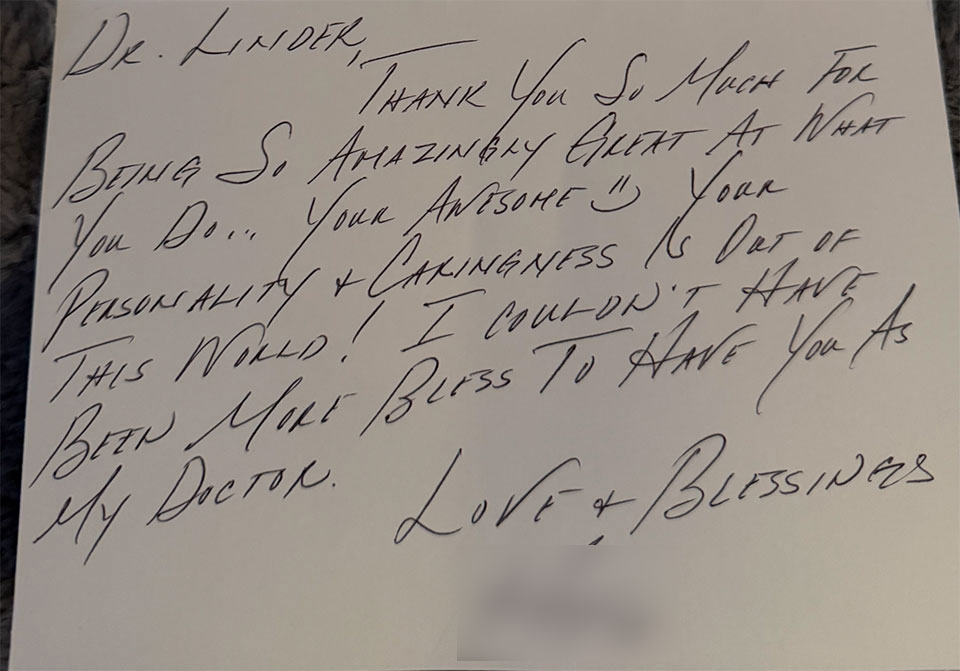 DR. LINDER,
THANK YOU SO MUCH FOR
BEING SO AMAZINGLY GREAT AT WHAT
YOU DO... YOUR AWESOME YOUR
PERSONALITY + CARINGNESS IS OUT OF
THIS WORLD! I COULDN'T HAVE
BEEN MORE BLESS TO HAVE YOU AS
MY DOCTOR.
LOVE + BLESSINGS